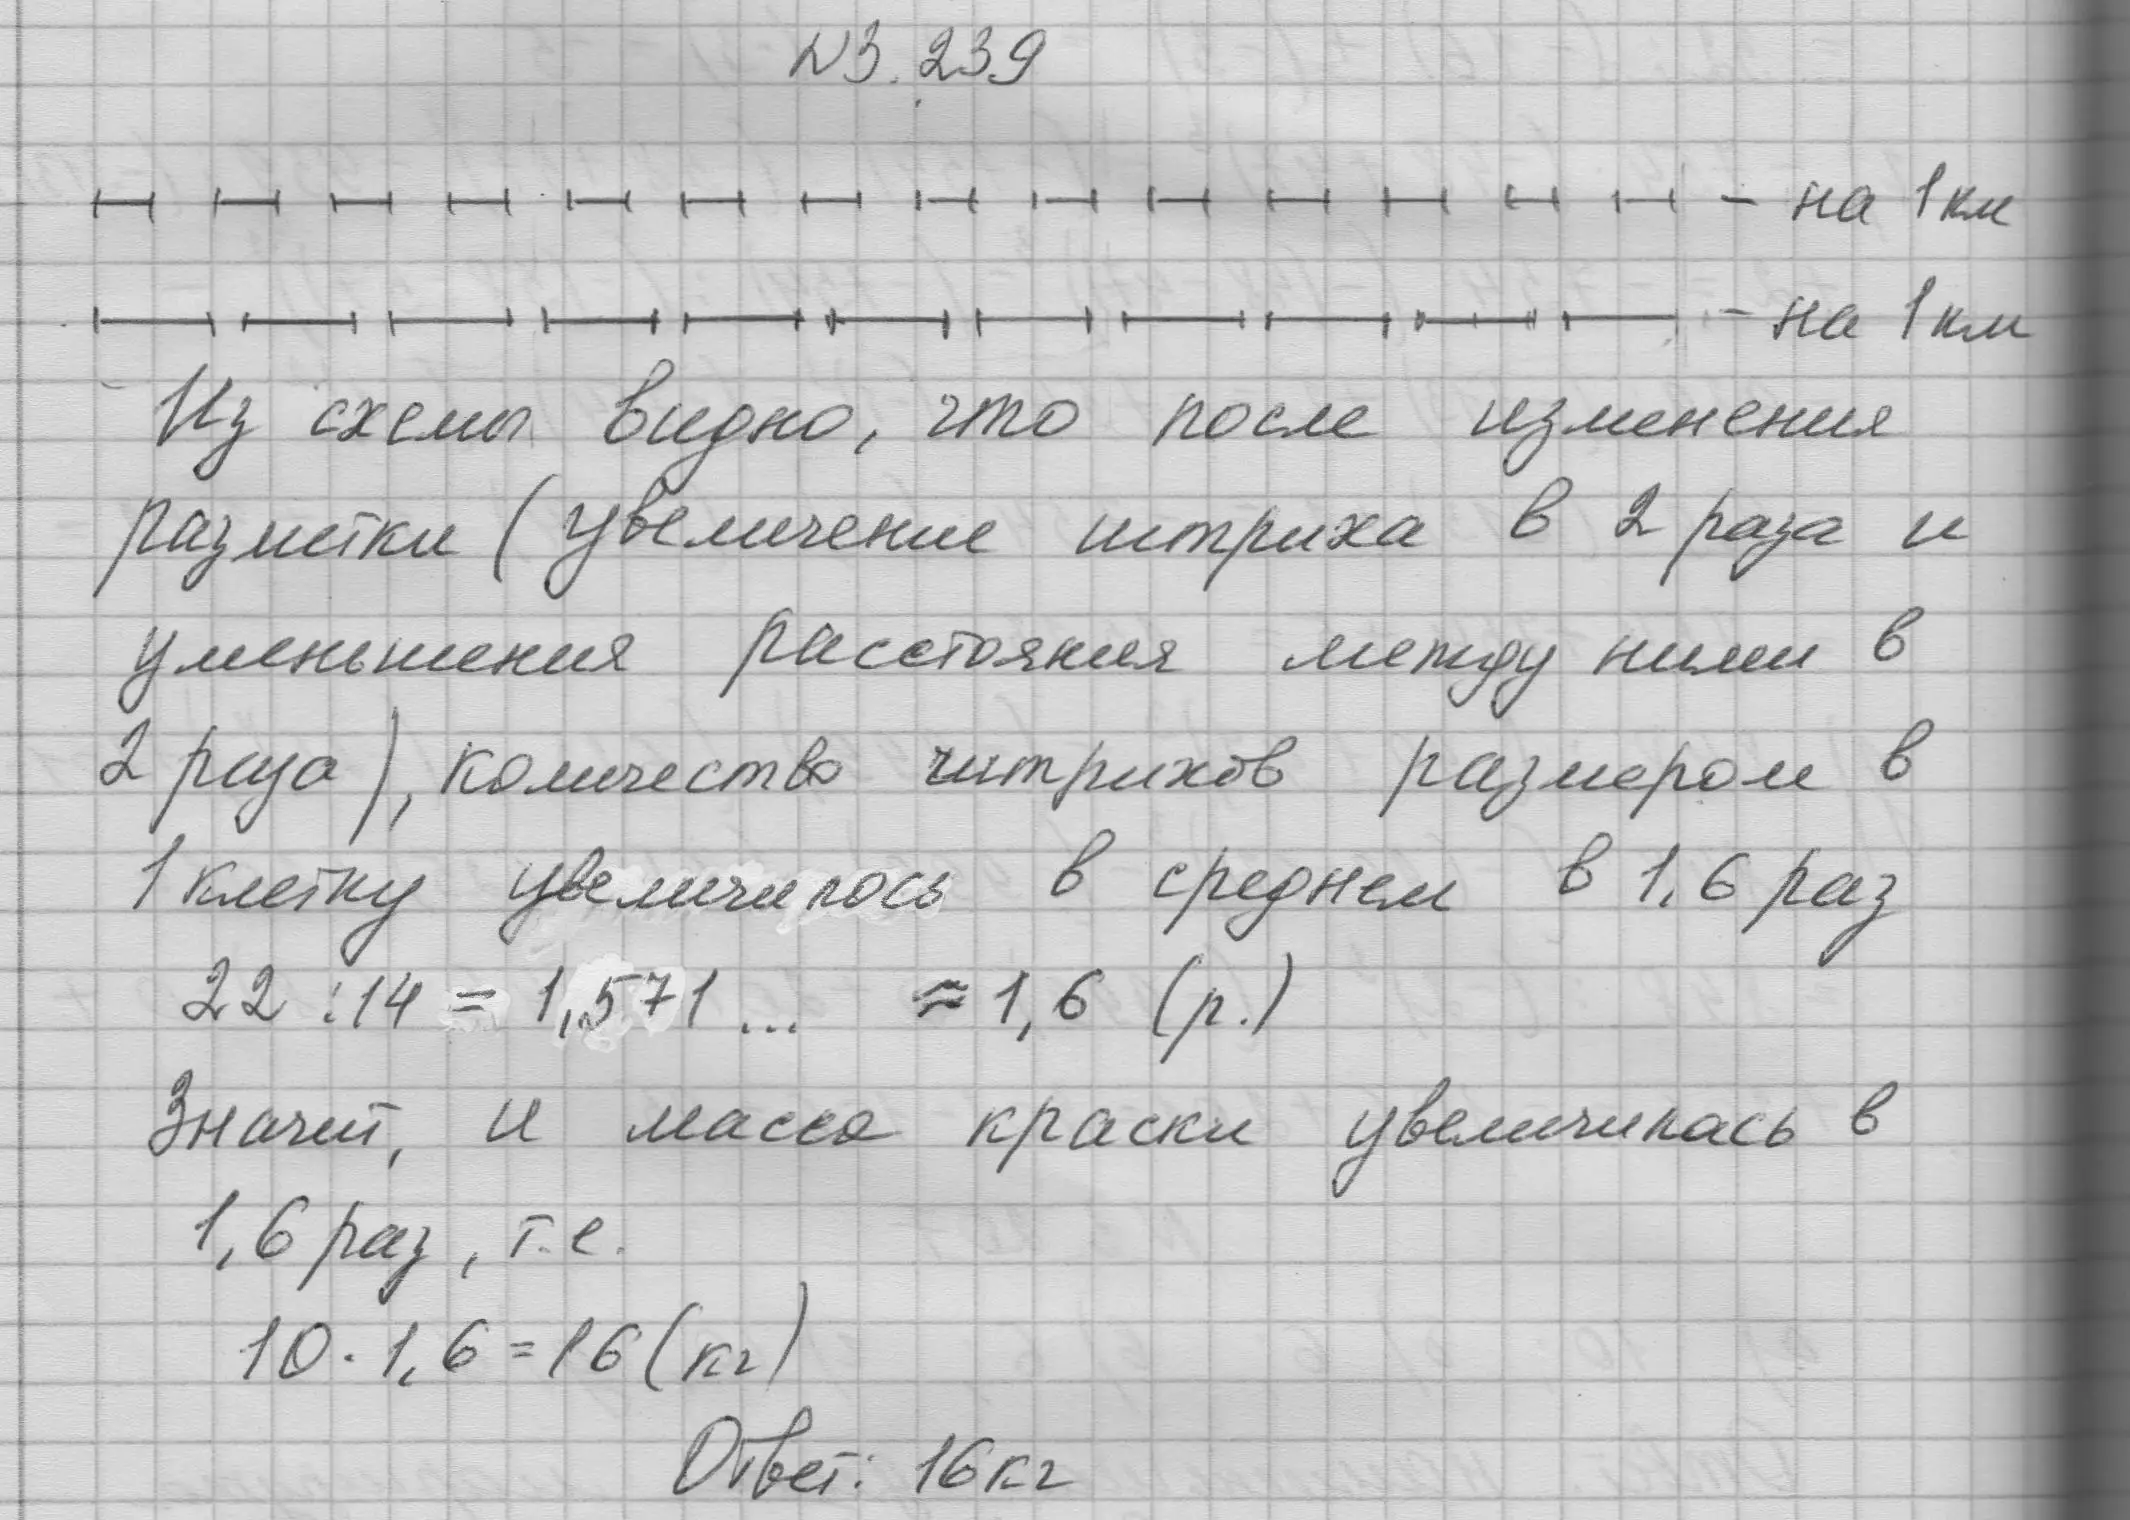 N3.239
– на 1км
– на 1км
Из схемы видно, что после изменения
разметки (увеличение штриха в 2 раза и
уменьшения расстояния между ними в
2 раза), количество штрихов размером в
1 клетку увеличилось в среднем в 1,6 раз
22 : 14 = 1,571 ... ≈ 1,6 (р.)
Значит, и масса краски увеличилась в
1,6 раз, т.е.
10 · 1,6 = 16 (кг)
Ответ: 16кг